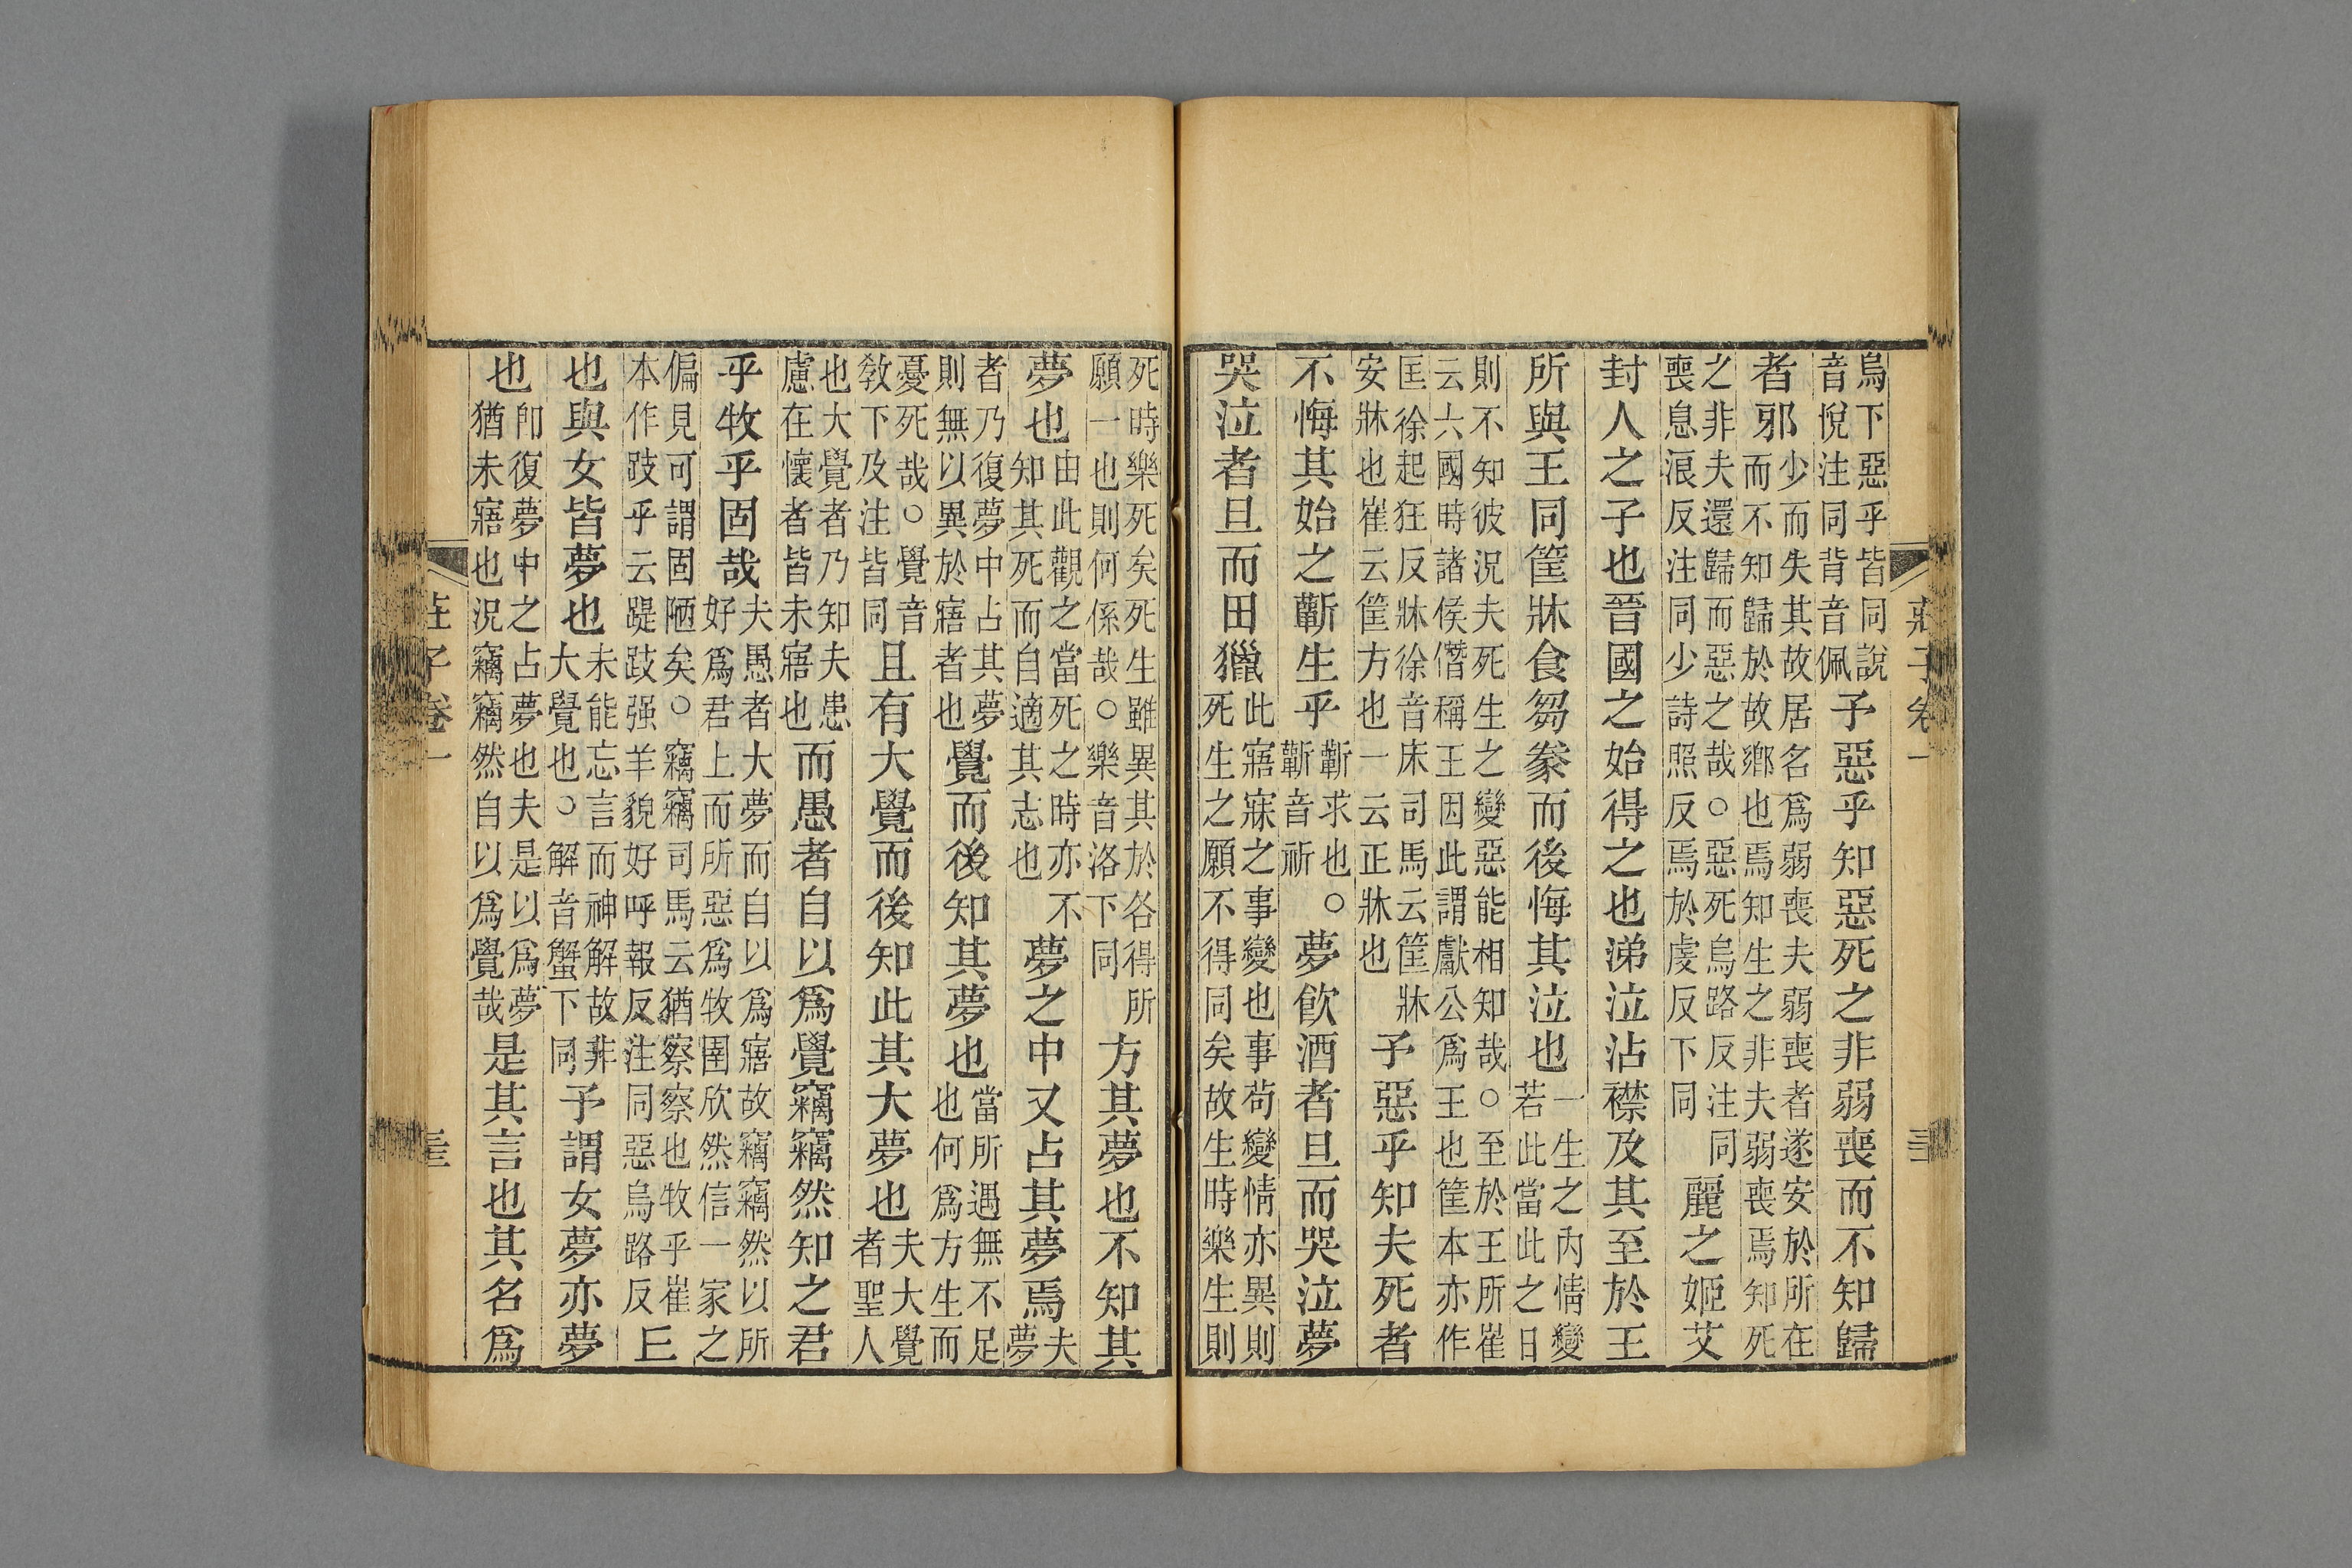 烏下惡乎皆同說音悅注同背音佩予惡乎知惡死之非弱喪而不知歸
者邪少而失其故居名爲弱喪夫弱喪者遂安於所在而不知歸於故鄉也焉知生之非夫弱喪焉知死
之非夫還歸而惡之哉○惡死烏路反注同喪息浪反注同少詩照反焉於虔反下同麗之姬艾
封人之子也晉國之始得之也涕泣沾襟及其至於王
所與王同筐牀食芻豢而後悔其泣也一生之內情變若此當此之日
則不知彼況夫死生之變惡能相知哉○至於王所崔云六國時諸侯僭稱王因此謂獻公爲王也筐本亦作
匡徐起狂反牀徐音床司馬云筐牀安牀也崔云筐方也一云正牀也予惡乎知夫死者
不悔其始之蘄生乎蘄求也○蘄音祈夢飮酒者旦而哭泣夢
哭泣者旦而田獵此寤寐之事變也事苟變情亦異則死生之願不得同矣故生時樂生則
死時樂死矣死生雖異其於各得所願一也則何係哉○樂音洛下同方其夢也不知其
夢也由此觀之當死之時亦不知其死而自適其志也夢之中又占其夢焉夫夢
者乃復夢中占其夢則無以異於寤者也覺而後知其夢也當所遇無不足也何爲方生而
憂死哉○覺音敎下及注皆同且有大覺而後知此其大夢也夫大覺者聖人
也大覺者乃知夫患慮在懷者皆未寤也而愚者自以爲覺竊竊然知之君
乎牧乎固哉夫愚者大夢而自以爲寤故竊竊然以所好爲君上而所惡爲牧圉欣然信一家之
偏見可謂固陋矣○竊竊司馬云猶察察也牧乎崔本作跂乎云踶跂强羊貌好呼報反注同惡烏路反丘
也與女皆夢也未能忘言而神解故非大覺也○解音蟹下同予謂女夢亦夢
也卽復夢中之占夢也夫是以爲夢猶未寤也況竊竊然自以爲覺哉是其言也其名爲
莊子卷一